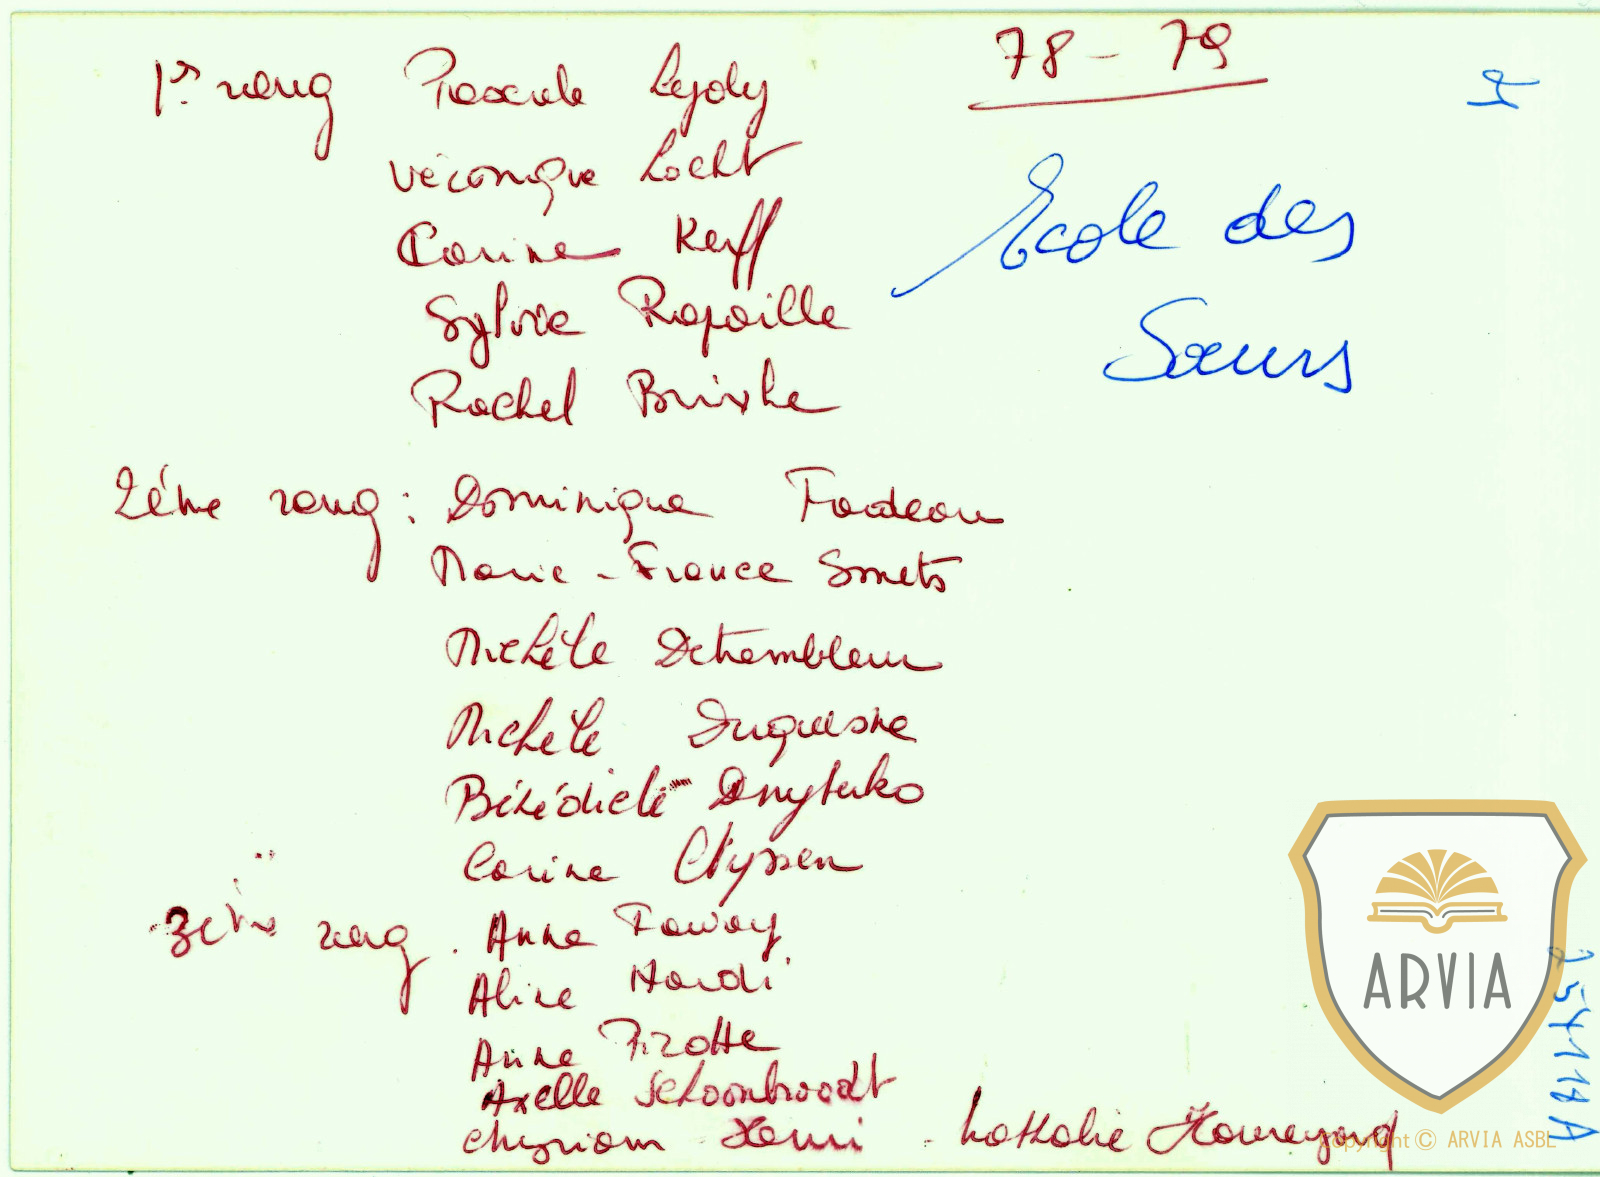 78 - 79
1er rang Pascale Lejoly
Véronique Locht
Corine Kerff
Sylvie Rapaille
Rachel Brixhe
Ecole des
Sœurs
2ème rang : Dominique
Marie - France Smets
Michèle Detrembleur
Michèle Duquesne
Bénédicte Dmytuko
Corine Clyssen
3ème rang . Anne Faway
Aline Hardi
Anne Pirotte
Axelle Schoonbroodt
Myriam Henri . Nathalie
ARVIA
Copyright © ARVIA ASBL